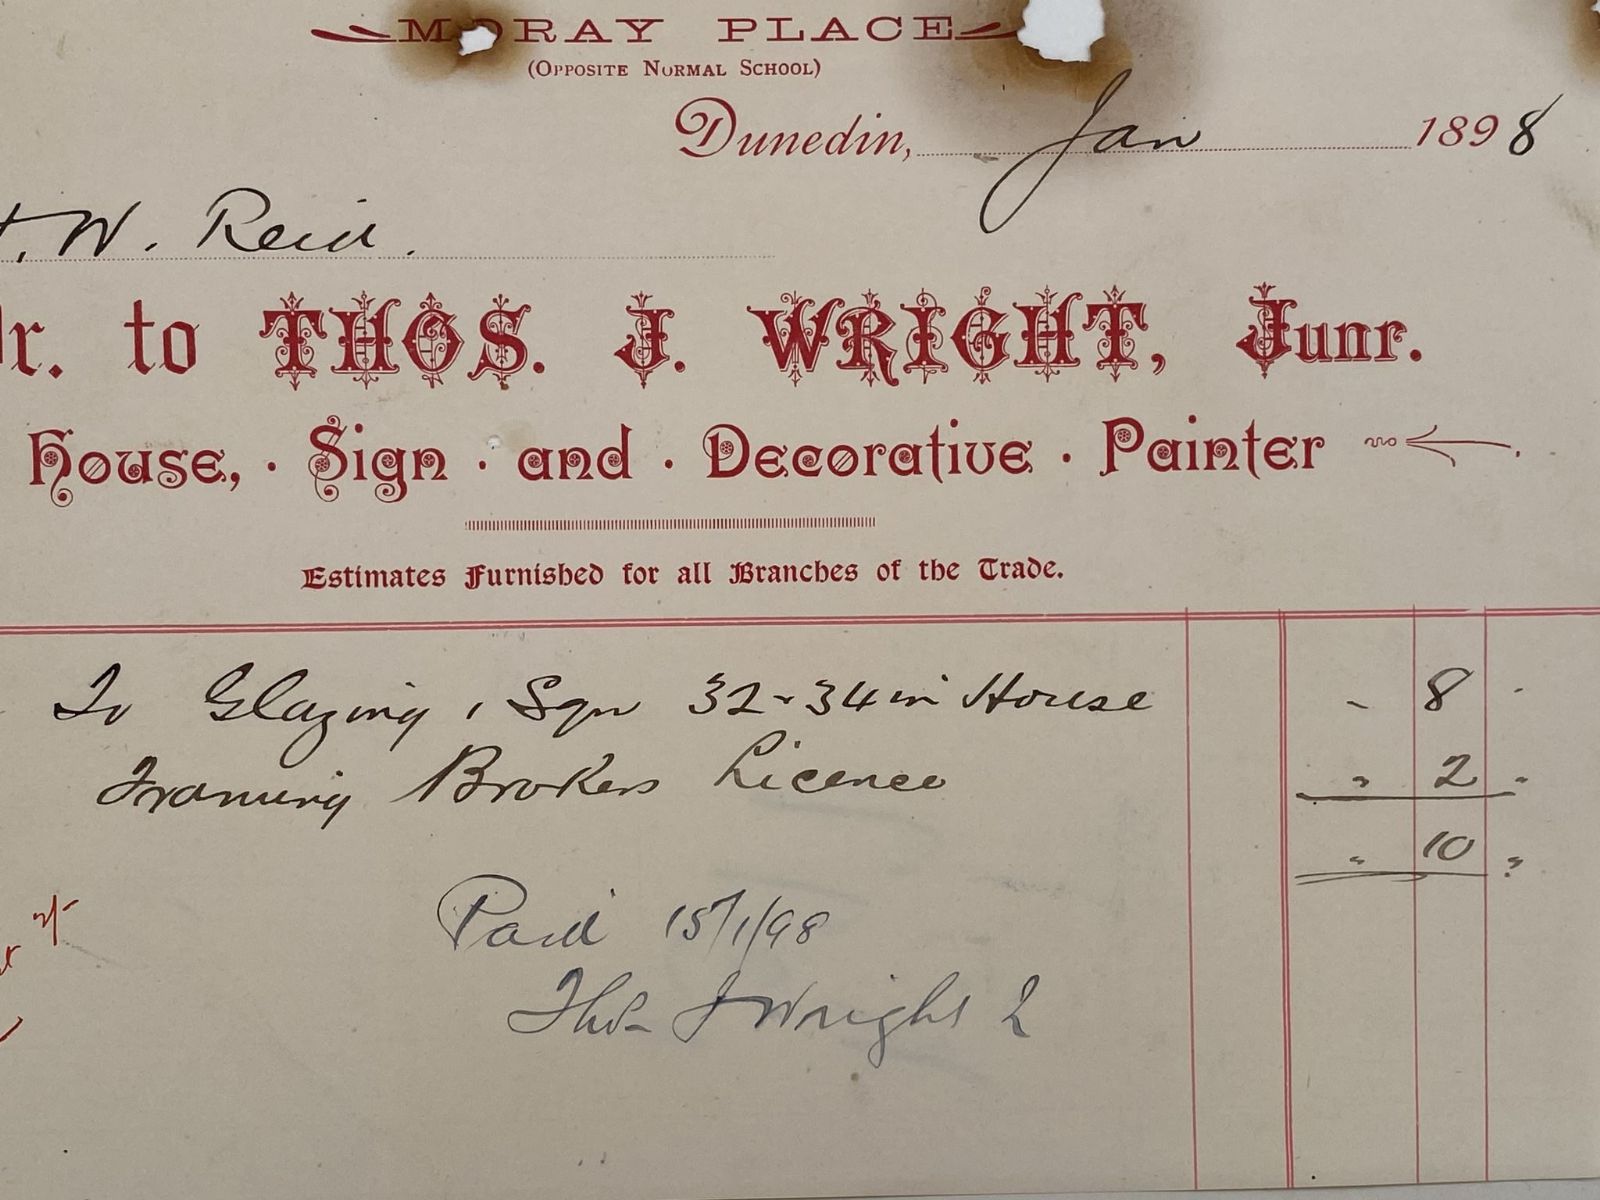 MORAY PLACE
(OPPOSITE NORMAL SCHOOL)
Dunedin, Jan 1898
W. Reid.
Dr. to THOS. J. WRIGHT, Junr.
House, · Sign · and · Decorative · Painter
Estimates Furnished for all Branches of the Trade.
To Glazing 1 Sqr 32 × 34 in House - 8 -
Framing Brokers Licence " 2 "
" 10 "
Paid 15/1/98
Thos J Wright